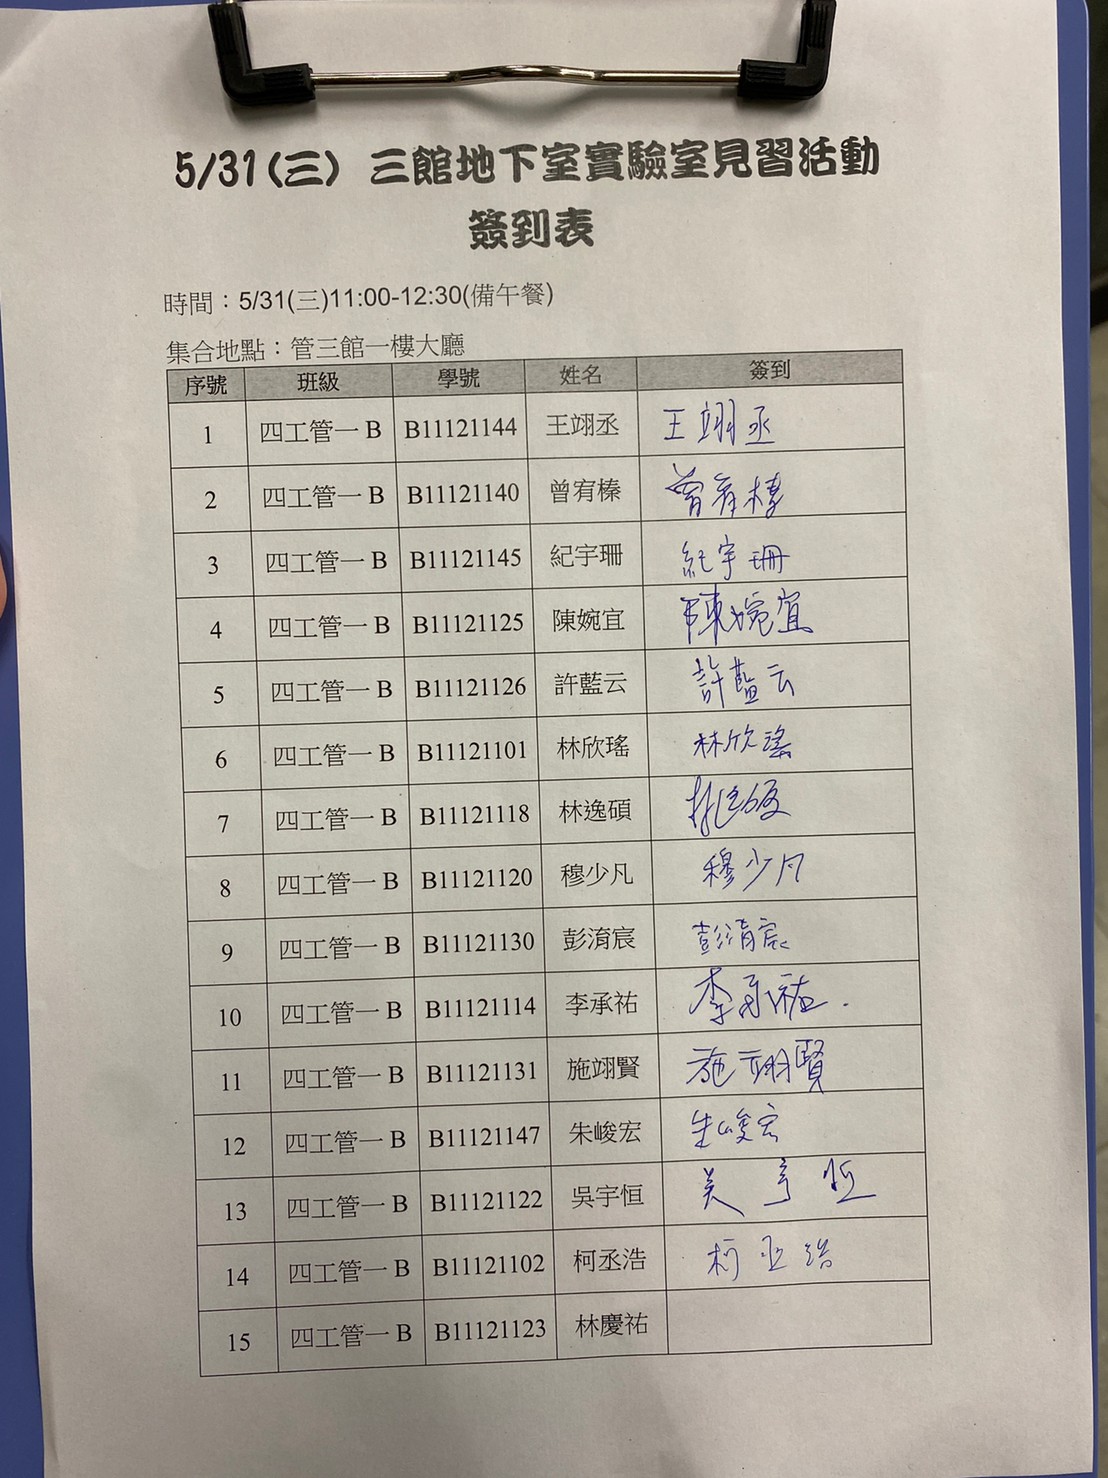 5/31(三) 三館地下室實驗室見習活動
簽到表
時間：5/31(三)11:00-12:30(備午餐)
集合地點：管三館一樓大廳
序號 班級 學號 姓名 簽到
1 四工管一 B B11121144 王翊丞 王翊丞
2 四工管一 B B11121140 曾宥榛 曾宥榛
3 四工管一 B B11121145 紀宇珊 紀宇珊
4 四工管一 B B11121125 陳婉宜 陳婉宜
5 四工管一 B B11121126 許藍云 許藍云
6 四工管一 B B11121101 林欣瑤 林欣瑤
7 四工管一 B B11121118 林逸碩 林逸碩
8 四工管一 B B11121120 穆少凡 穆少凡
9 四工管一 B B11121130 彭淯宸 彭淯宸
10 四工管一 B B11121114 李承祐 李承祐.
11 四工管一 B B11121131 施翊賢 施翊賢
12 四工管一 B B11121147 朱峻宏 朱峻宏
13 四工管一 B B11121122 吳宇恒 吳宇恒
14 四工管一 B B11121102 柯丞浩 柯丞浩
15 四工管一 B B11121123 林慶祐